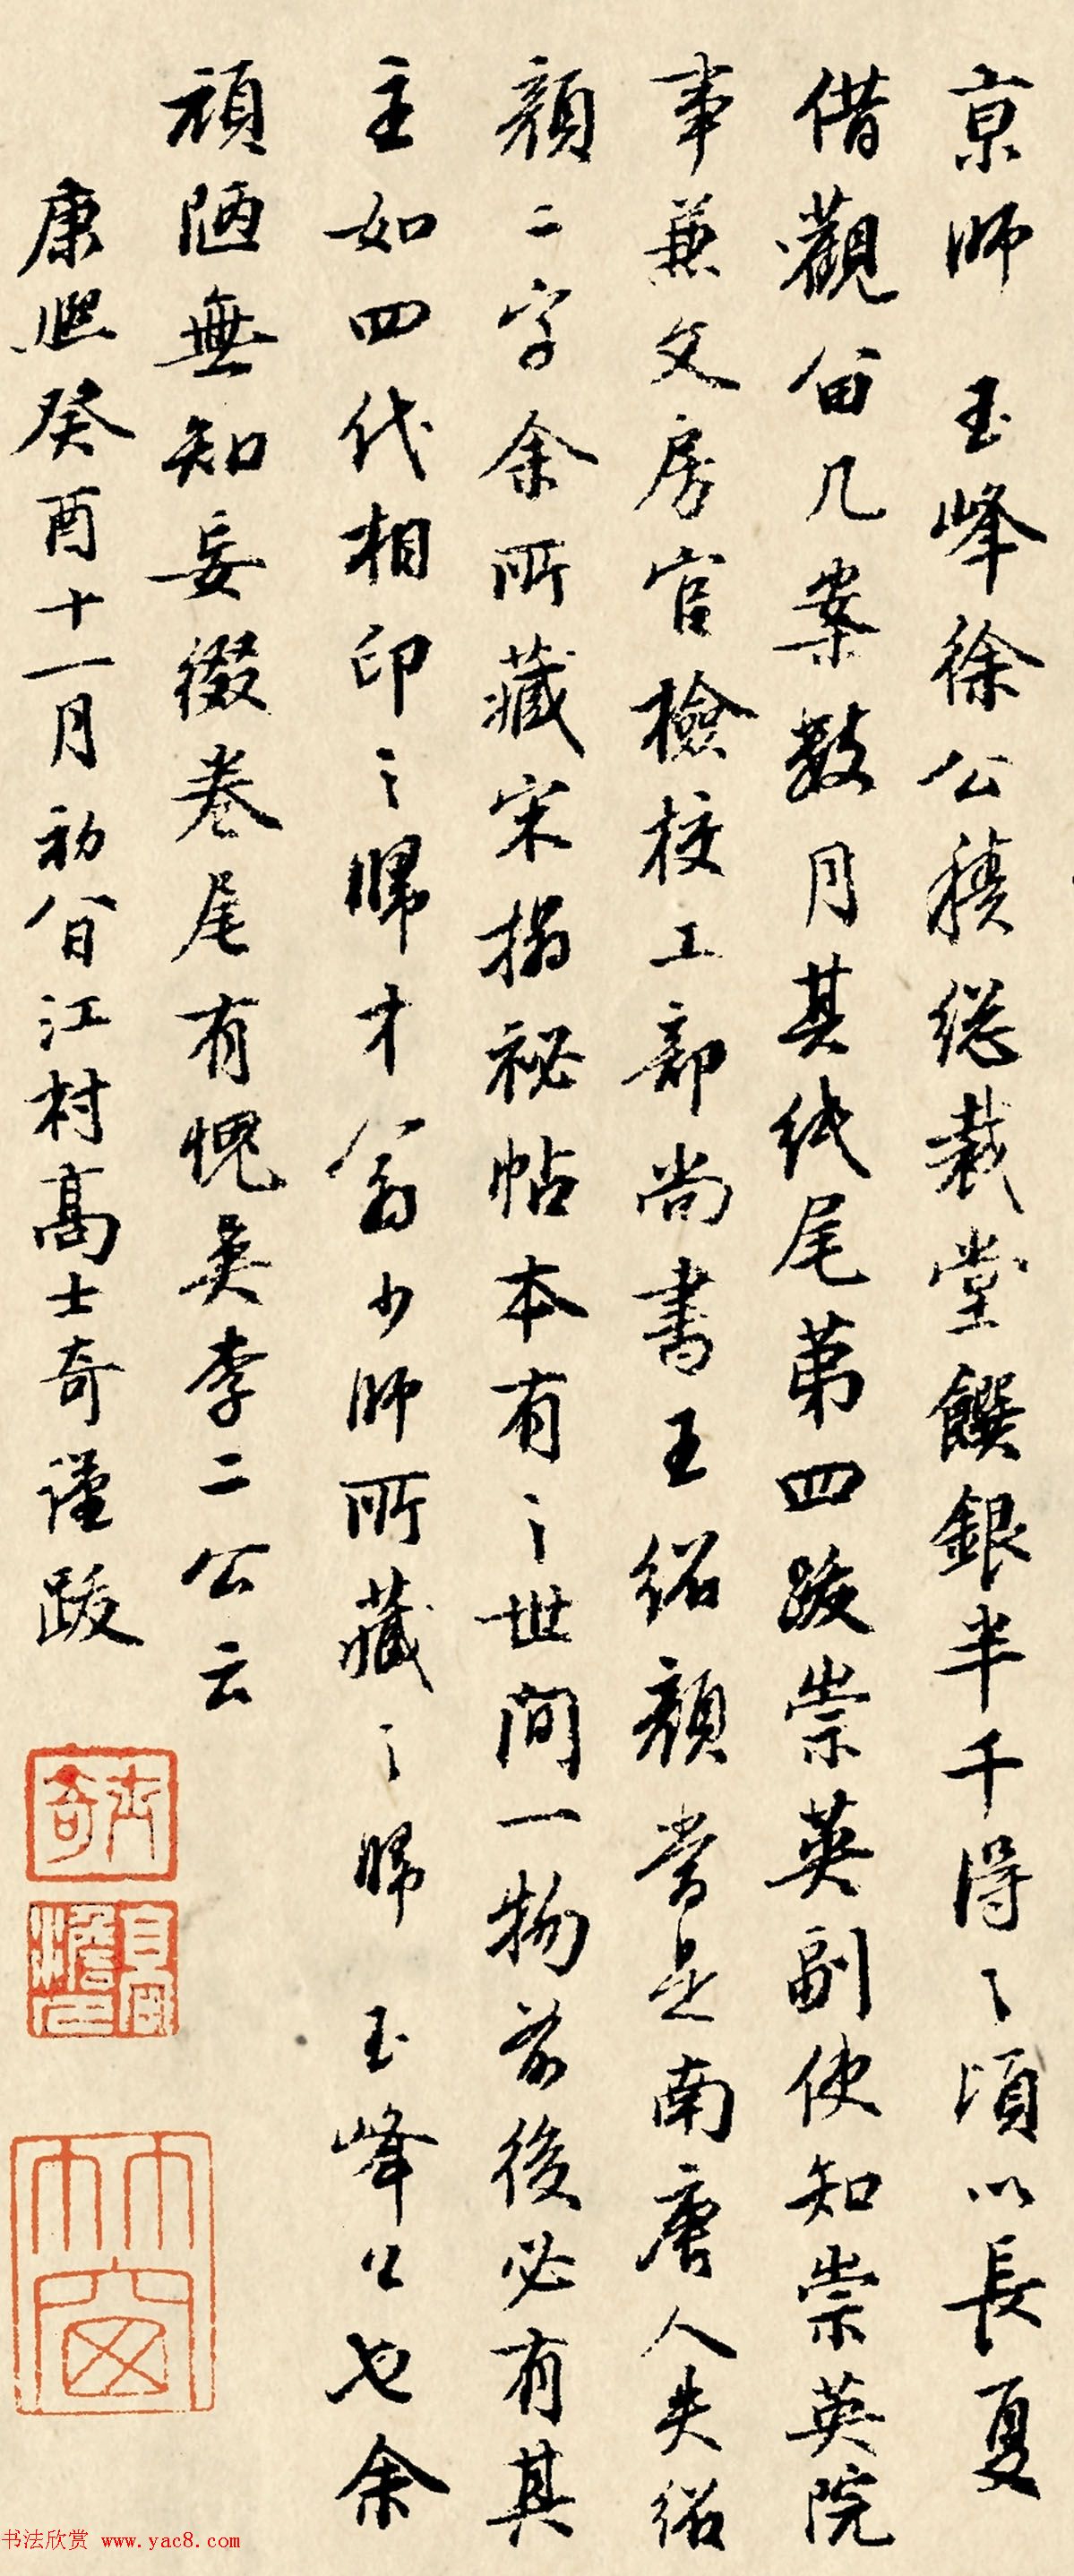 京師　玉峰徐公積總裁堂饌銀半千得之頃以長夏
借觀留几案數月其紙尾第四跋崇英副使知崇英院
事兼文房官檢校工部尚書王紹顏當是南唐人失紹
顏二字余所藏宋搨祕帖本有之世間一物前後必有其
主如四代相印之歸才翁少師所藏之歸　玉峰公也余
頑陋無知妄綴卷尾有愧吳李二公云
康熙癸酉十一月初八日江村高士奇謹跋
士奇
竹窗
书法欣赏 www.yac8.com